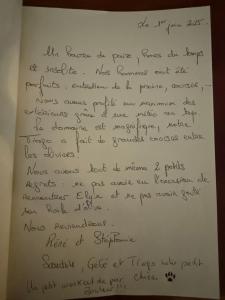 Le 1er juin 2025.
Un havre de paix, hors du temps
et insolite. Nos hommes ont été
parfaits : entretien de la piscine, accueil,
Nous avons profité au maximum des
extérieurs grâce à une météo au top.
Le domaine est magnifique, notre
Tiago a fait de grandes courses entre
les oliviers!
Nous avons tout de même 2 petits
regrets : ne pas avoir eu l'occasion de
rencontrer Elyse et ne pas avoir goûté
son huile d'olive.
Nous reviendrons.
Réné et Stéphanie
Gégé et Tiago notre petit
chien
Un petit week-end de pur
bonheur!!!